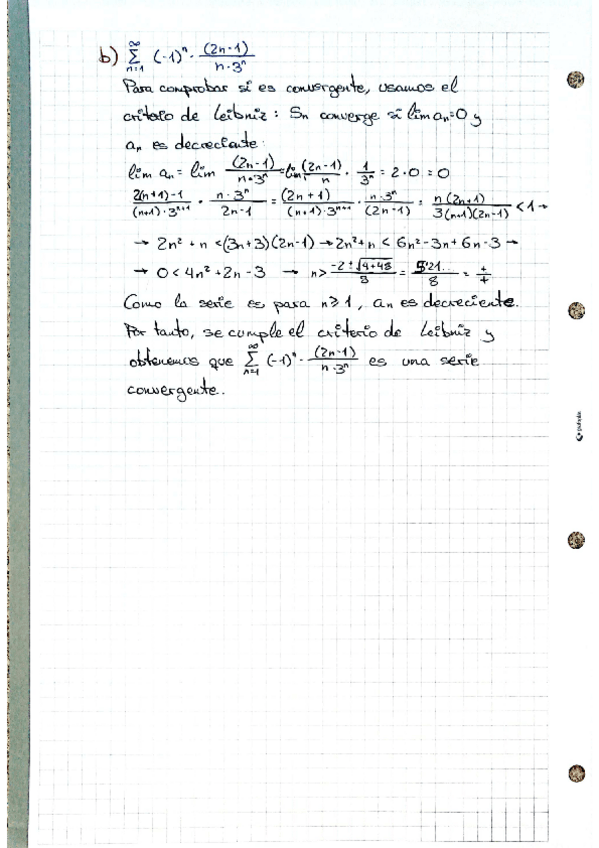 b) ∞ Σ n=1 (-1)ⁿ · (2n-1) / n·3ⁿ
Para comprobar si es convergente, usamos el
criterio de Leibniz: Sn converge si lim aₙ=0 y
aₙ es decreciente:
lim aₙ = lim (2n-1)/(n·3ⁿ) = lim (2n-1)/n · 1/3ⁿ = 2·0 = 0
(2(n+1)-1)/((n+1)·3ⁿ⁺¹) · (n·3ⁿ)/(2n-1) = (2n+1)/((n+1)·3ⁿ⁺¹) · (n·3ⁿ)/(2n-1) = n(2n+1)/(3(n+1)(2n-1)) < 1 →
→ 2n² + n < (3n+3)(2n-1) → 2n²+n < 6n²-3n+6n-3 →
→ 0 < 4n²+2n-3 → n >
Como la serie es para n≥1, aₙ es decreciente.
Por tanto, se cumple el criterio de Leibniz y
obtenemos que ∞ Σ n=1 (-1)ⁿ · (2n-1)/(n·3ⁿ) es una serie
convergente..